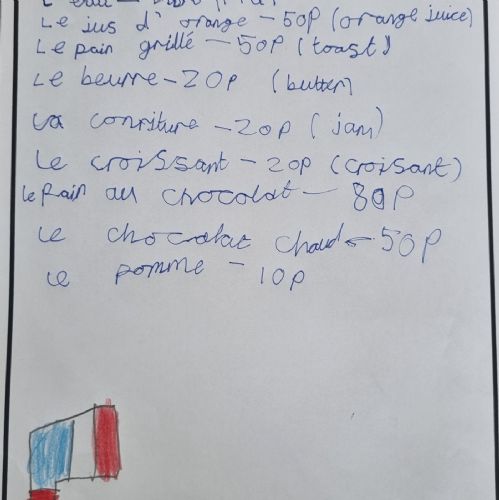 L'eau –
Le jus d'orange – 50p (orange juice)
Le pain grillé – 50p (toast)
Le beurre – 20p (butter)
La confiture – 20p (jam)
Le croissant – 20p (croisant)
Le Pain au chocolat – 80p
Le chocolat chaud – 50p
Le pomme – 10p